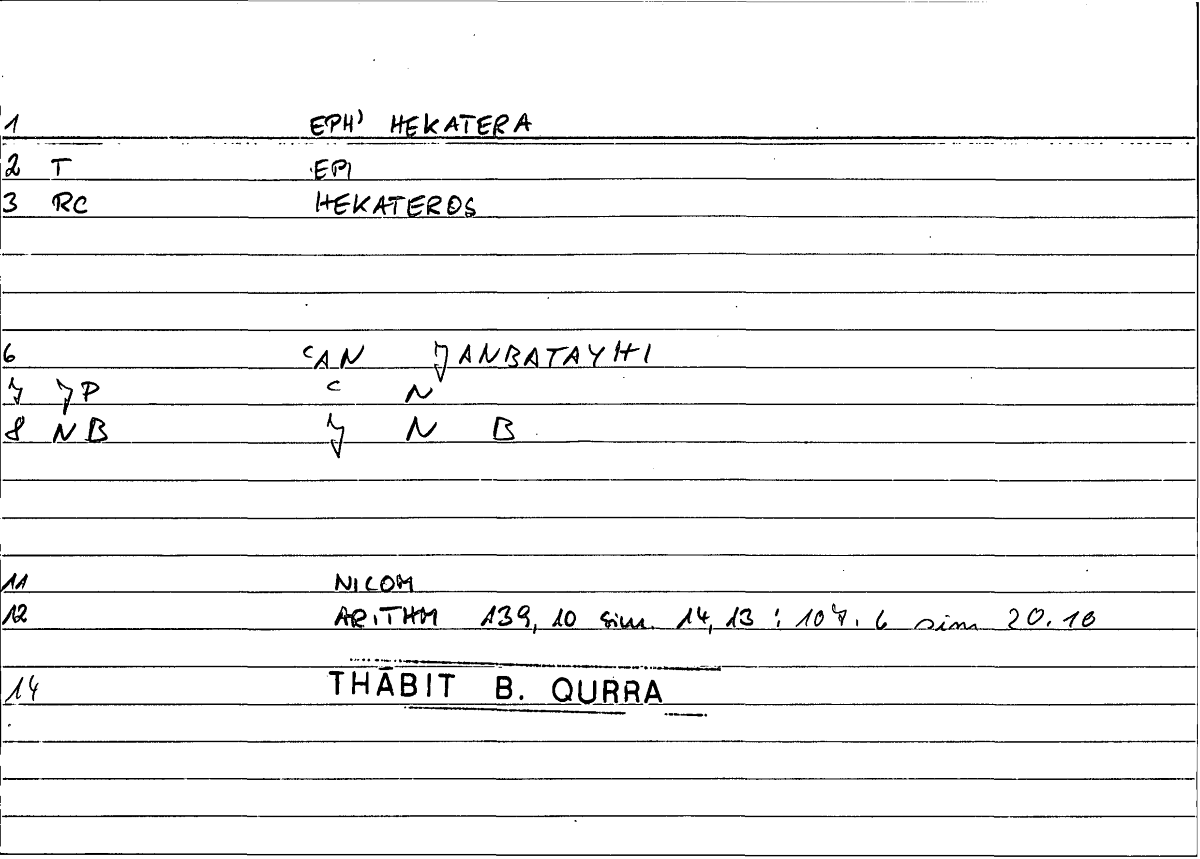 1 EPH' HEKATERA
2 T EPI
3 RC HEKATEROS
6 ʿAN JANBATAYHI
7 JP ʿ N
8 NB J N B
11 NICOM
12 ARITHM 139, 10 sim. 14, 13 ; 107. 6 sim 20. 18
14 THĀBIT B. QURRA